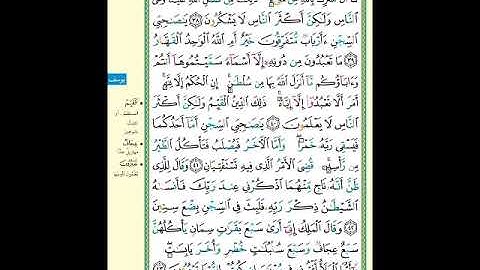 النَّاسِ وَلَـٰكِنَّ أَكْثَرَ النَّاسِ لَا يَشْكُرُونَ ٣٨ يَـٰصَـٰحِبَىِ
السِّجْنِ ءَأَرْبَابٌ مُّتَفَرِّقُونَ خَيْرٌ أَمِ اللَّهُ الْوَٰحِدُ الْقَهَّارُ
٣٩ مَا تَعْبُدُونَ مِن دُونِهِ إِلَّا أَسْمَاءً سَمَّيْتُمُوهَا أَنتُمْ
وَءَابَاؤُكُم مَّا أَنزَلَ اللَّهُ بِهَا مِن سُلْطَـٰنٍ إِنِ الْحُكْمُ إِلَّا لِلَّهِ
أَمَرَ أَلَّا تَعْبُدُوا إِلَّا إِيَّاهُ ذَٰلِكَ الدِّينُ الْقَيِّمُ وَلَـٰكِنَّ أَكْثَرَ
النَّاسِ لَا يَعْلَمُونَ ٤٠ يَـٰصَـٰحِبَىِ السِّجْنِ أَمَّا أَحَدُكُمَا
فَيَسْقِى رَبَّهُ خَمْرًا وَأَمَّا الْآخَرُ فَيُصْلَبُ فَتَأْكُلُ الطَّيْرُ
مِن رَّأْسِهِ قُضِىَ الْأَمْرُ الَّذِى فِيهِ تَسْتَفْتِيَانِ ٤١ وَقَالَ لِلَّذِى
ظَنَّ أَنَّهُ نَاجٍ مِّنْهُمَا اذْكُرْنِى عِندَ رَبِّكَ فَأَنسَىٰهُ
الشَّيْطَـٰنُ ذِكْرَ رَبِّهِ فَلَبِثَ فِى السِّجْنِ بِضْعَ سِنِينَ
٤٢ وَقَالَ الْمَلِكُ إِنِّى أَرَىٰ سَبْعَ بَقَرَٰتٍ سِمَانٍ يَأْكُلُهُنَّ
سَبْعٌ عِجَافٌ وَسَبْعَ سُنبُلَـٰتٍ خُضْرٍ وَأُخَرَ يَابِسَـٰتٍ
يوسف
الْقَيِّمُ
عِجَافٌ